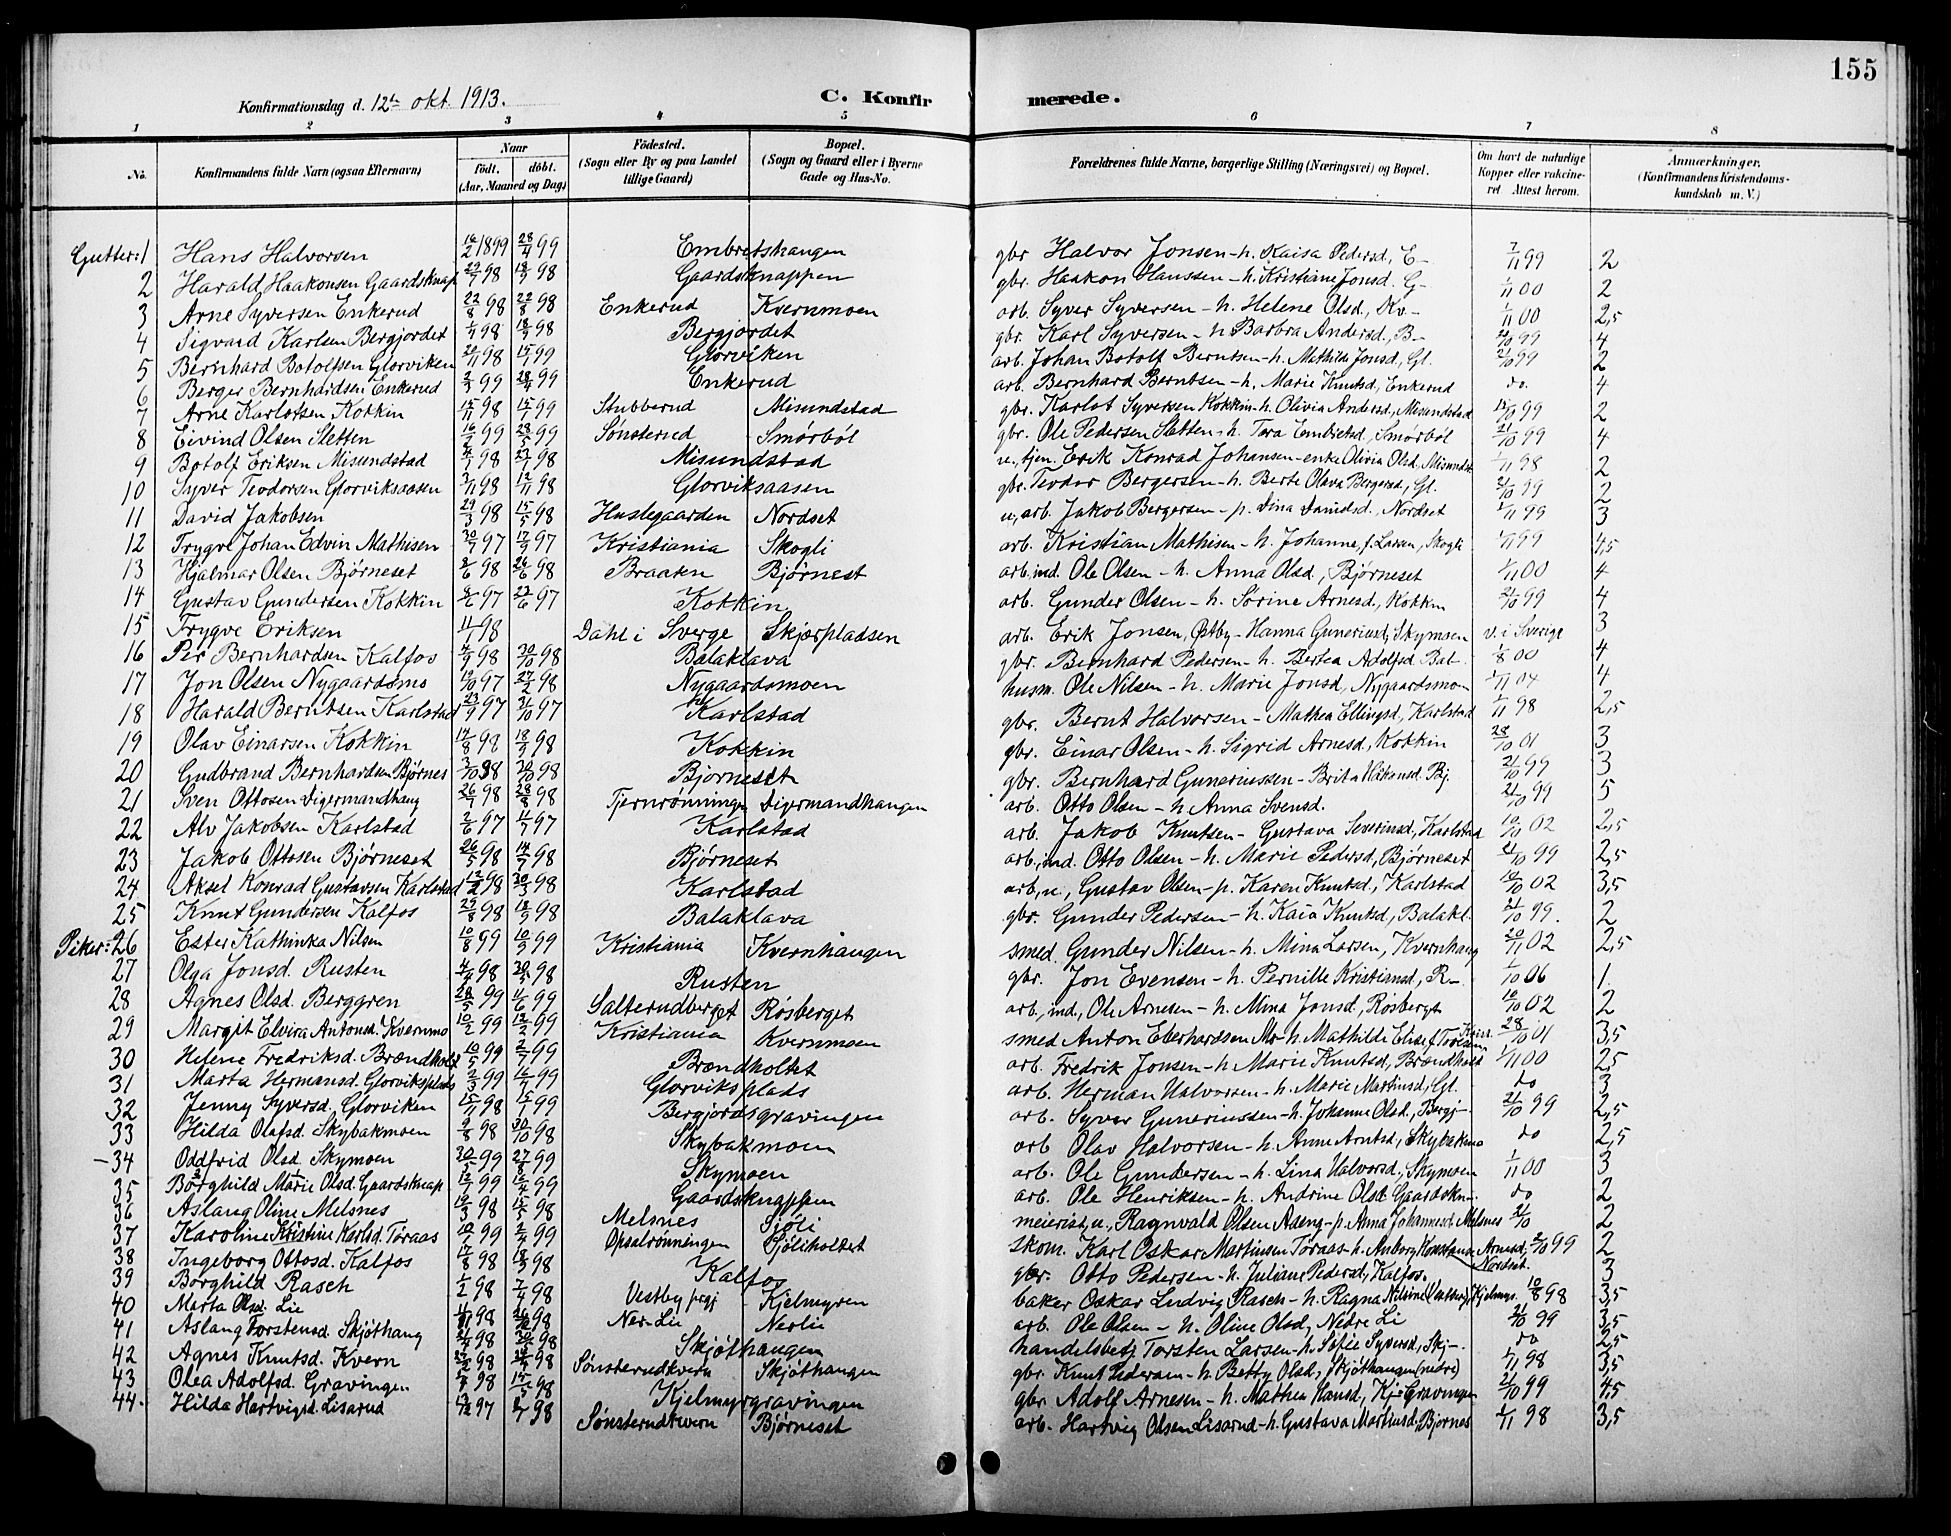 155
Konfirmationsdag d. 12te okt. 1913.
C. Konfirmerede.
1 2 3 4 5 6 7 8
No. Konfirmandens fulde Navn (ogsaa Efternavn) Naar födt. döbt. (Aar, Maaned og Dag) Födested. (Sogn eller By og paa Landet tillige Gaard) Bopæl. (Sogn og Gaard eller i Byerne Gade og Hus-No. Forældrenes fulde Navne, borgerlige Stilling (Næringsvei) og Bopæl. Om havt de naturlige Kopper eller vakcineret Attest herom. Anmærkninger. (Konfirmandens Kristendomskundskab m. V.)
Gutter: 1 Hans Halvorsen 16/2 1899 28/4 99 Embretshangen gbr Halvor Jonsen - h. Kaisa Pedersd, E- 7/11 99 2
2 Harald Haakonsen Gaardsknap 98 18/9 98 Gaardsknappen gbr. Haakon Hanssen - h. Kristiane Jonsd. G- 1/11 00 2
3 Arne Syversen Enkerud 98 98 Enkerud Kvernmoen arb. Syver Syversen - h. Helene Olsd., Kv- 1/11 00 2,5
4 Sigvard Karlsen Bergjordet 98 18/9 98 Bergjordet gbr. Karl Syversen - h Barbra Andersd., B- 99 4
5 Bernhard Botolfsen Glorviken 20/11 98 15/1 99 Glorviken arb. Johan Botolf Berntsen - h. Mathilde Jonsd, Gl. 21/10 99 2
6 Berger Bernhardsen Enkerud 99 28/4 99 Enkerud arb. Bernhard Berntsen - h. Marie Knutsd, Enkerud do. 4
7 Arne Karlotsen Kokkin 15/11 98 15/1 99 Stubberud Misundstad gbr. Karlot Syversen Kokkin - h. Olivia Andersd, Misundstad 99 2
8 Eivind Olsen Sletten 16/2 99 28/5 99 Sønsterud Smørbøl gbr. Ole Pedersen Sletten - h. Tora Embretsd, Smørbøl 21/10 99 4
9 Botolf Eriksen Misundstad 98 98 Misundstad u., tjen. Erik Konrad Johansen - enke Olivia Olsd, Misundst. 1/11 98 2
10 Syver Teodorsen Glorviksaasen 98 98 Glorviksaasen gbr. Teodor Bergersen - h. Berte Olava Bergersd, Gl. 21/10 99 2
11 David Jakobsen 29/3 98 15/5 98 Huslegaarden Nordset u, arb. Jakob Bergersen - p. Dina Danielsd., Nordset 1/11 99 3
12 Trygve Johan Edvin Mathisen 30/7 97 17/9 97 Kristiania Skogli arb. Kristian Mathisen - h. Johanne, f. Larsen, Skogli 99 4,5
13 Hjalmar Olsen Bjørneset 98 26/6 98 Braaten Bjørnest arb. ind. Ole Olsen - h. Anna Olsd., Bjørneset 1/11 00 4
14 Gustav Gundersen Kokkin 97 97 Kokkin arb. Gunder Olsen - h. Sørine Arnesd, Kokkin 21/10 99 4
15 Trygve Eriksen 98 Dahl i Sverge Skjærpladsen arb. Erik Jonsen, Østby - Hanna Guneriusd, Skymoen v. i Sverige 3
16 Per Bernhardsen Kalfos 98 30/10 98 Balaklava gbr. Bernhard Pedersen - h. Bertea Adolfsd. Bal- 1/8 00 4
17 Jon Olsen Nygaardsmo 97 27/2 98 Nygaardsmoen husm. Ole Nilsen - h. Marie Jonsd, Nygaardsmo- 1/11 04 4
18 Harald Berntsen Karlstad 23/9 97 31/10 97 Karlstad gbr. Bernt Halvorsen - Mathea Ellingsd, Karlstad 1/11 98 2,5
19 Olav Einarsen Kokkin 98 18/9 98 Kokkin gbr. Einar Olsen - h. Sigrid Arnesd, Kokkin 28/10 01 3
20 Gudbrand Bernhardsen Bjørnes 3/10 98 30/10 98 Bjørneset gbr. Bernhard Guneriussen - Brita Håkonsd. Bj. 21/10 99 3
21 Sven Ottosen Digermandhang 26/7 98 28/8 98 Tjernrønningen Digermandhangen arb. Otto Olsen - h. Anna Svensd. 21/10 99 5
22 Alv Jakobsen Karlstad 97 97 Karlstad arb. Jakob Knutsen - Gustava Severinsd, Karlstad 02 2,5
23 Jakob Ottosen Bjørneset 26/5 98 98 Bjørneset arb, ind. Otto Olsen - h. Marie Pedersd, Bjørneset 21/10 99 2,5
24 Aksel Konrad Gustavsen Karlstad 12/2 98 30/3 98 Karlstad arb, u., Gustav Olsen - p. Karen Knutsd., Karlstad 02 3,5
25 Knut Gundersen Kalfos 98 18/9 98 Balaklava gbr. Gunder Pedersen - h. Kaia Knutsd, Balakl. 21/10 99. 2
Piker: 26 Ester Kathinka Nilsen 10/8 99 10/9 99 Kristiania Kvernhangen smed Gunder Nilsen - h. Mina Larsen, Kvernhang 20/11 02 2,5
27 Olga Jonsd. Rusten 98 98 Rusten gbr. Jon Evensen - h. Pernille Kristiansd, R- 06 1.
28 Agnes Olsd. Berggren 28/5 99 99 Salterudberget Røsberget arb., ind, Ole Arnesen - h. Mina Jonsd, Røsberget 02 2
29 Margit Elvira Antonsd. Kvernmo 99 99 Kristiania Kvernmoen smed Anton Eberhardsen Mo - h. Mathilde Elise f. Troelsen 28/10 01 3,5
30 Helene Fredriksd. Brændholt 99 99 Brændholtet arb. Fredrik Jonsen - h. Marie Knutsd, Brændholt 1/11 00 2,5
31 Marta Hermansd. Glorviksplads 99 99 Glorviksplads arb. Herman Halvorsen - h. Marie Martinsd, Gl. do 3
32 Jenny Syversd. Glorviken 15/11 98 15/1 99 Bergjordsgravingen arb. Syver Guneriussen - h. Johanne Olsd., Bergj- 21/10 99 2,5
33 Hilda Olafsd. Skybakmoen 98 30/10 98 Skybakmoen arb Olav Halvorsen - h. Anne Arntsd, Skybakmo do 2,5
-34 Oddfrid Olsd. Skymoen 30/5 99 27/8 99 Skymoen arb. Ole Gundersen - h. Lina Halvorsd., Skymoen 1/11 00 3
35 Borghild Marie Olsd. Gaardsknap 99 99 Gaardsknappen arb. Ole Henriksen - h. Andrine Olsd Gaardskn- do 2
36 Aslaug Oline Melsnes 98 15/5 98 Melsnes Sjøli meierist, u., Ragnvald Olsen Aseng - p. Anna Johannesd. Melsnes 21/10 2
37 Karoline Kristine Karlsd. Toraas 99 99 Opsalrønningen Sjøliholtet skom. Karl Oskar Martinsen Toraas - h. Anborg Konstanse Arnesd, Nordset. 99 2
38 Ingeborg Ottosd. Kalfos 98 98 Kalfos gbr. Otto Pedersen - h. Juliane Pedersd, Kalfos. 3
39 Borghild Rasch 98 98 Vestby prgj Kjelmyren baker Oskar Ludvig Rasch - h. Ragna Nilsine, Kjelmyr. 10/8 98 3,5
40 Marta Olsd. Lie 98 98 Ner-Lie Nerlie arb. Ole Olsen - h. Oline Olsd, Nedre Li 21/10 99 3,5
41 Aslaug Torstensd. Skjøthang 98 98 Skjøthangen handelsbetj Torsten Larsen - h. Sofie Syversd, Skj-. do 2,5
42 Agnes Knutsd. Kvern 98 98 Sønsterudkvern Skjøthangen gbr. Knut Pedersen - h. Betty Olsd, Skjøthangen (nedre) 1/11 98 3,5
43 Olea Adolfsd. Gravingen 98 98 Kjelmyrgravingen gbr. Adolf Arnesen - h. Mathea Hansd, Kj. Gravingen 21/10 99 4,5
44. Hilda Hartvigsd. Lisarud 97 98 Sønsterudkvern Bjørneset arb. Hartvig Olsen Lisarud - h. Gustava Martinsd. Bjørnes 1/11 98 3,5